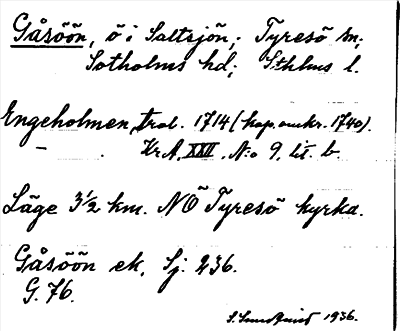 Gåsöön, ö i Saltsjön; Tyresö sn;
Sotholms hd; Sthlms l.
Engeholmen, trol. 1714 (kop. omkr. 1740).
Kr A, XXII, N:o 9, lit. b.
Läge 3 1/2 km. NÖ Tyresö kyrka.
Gåsöön ek. Sj. 236.
G. 76.
S. Lundkvist 1936.